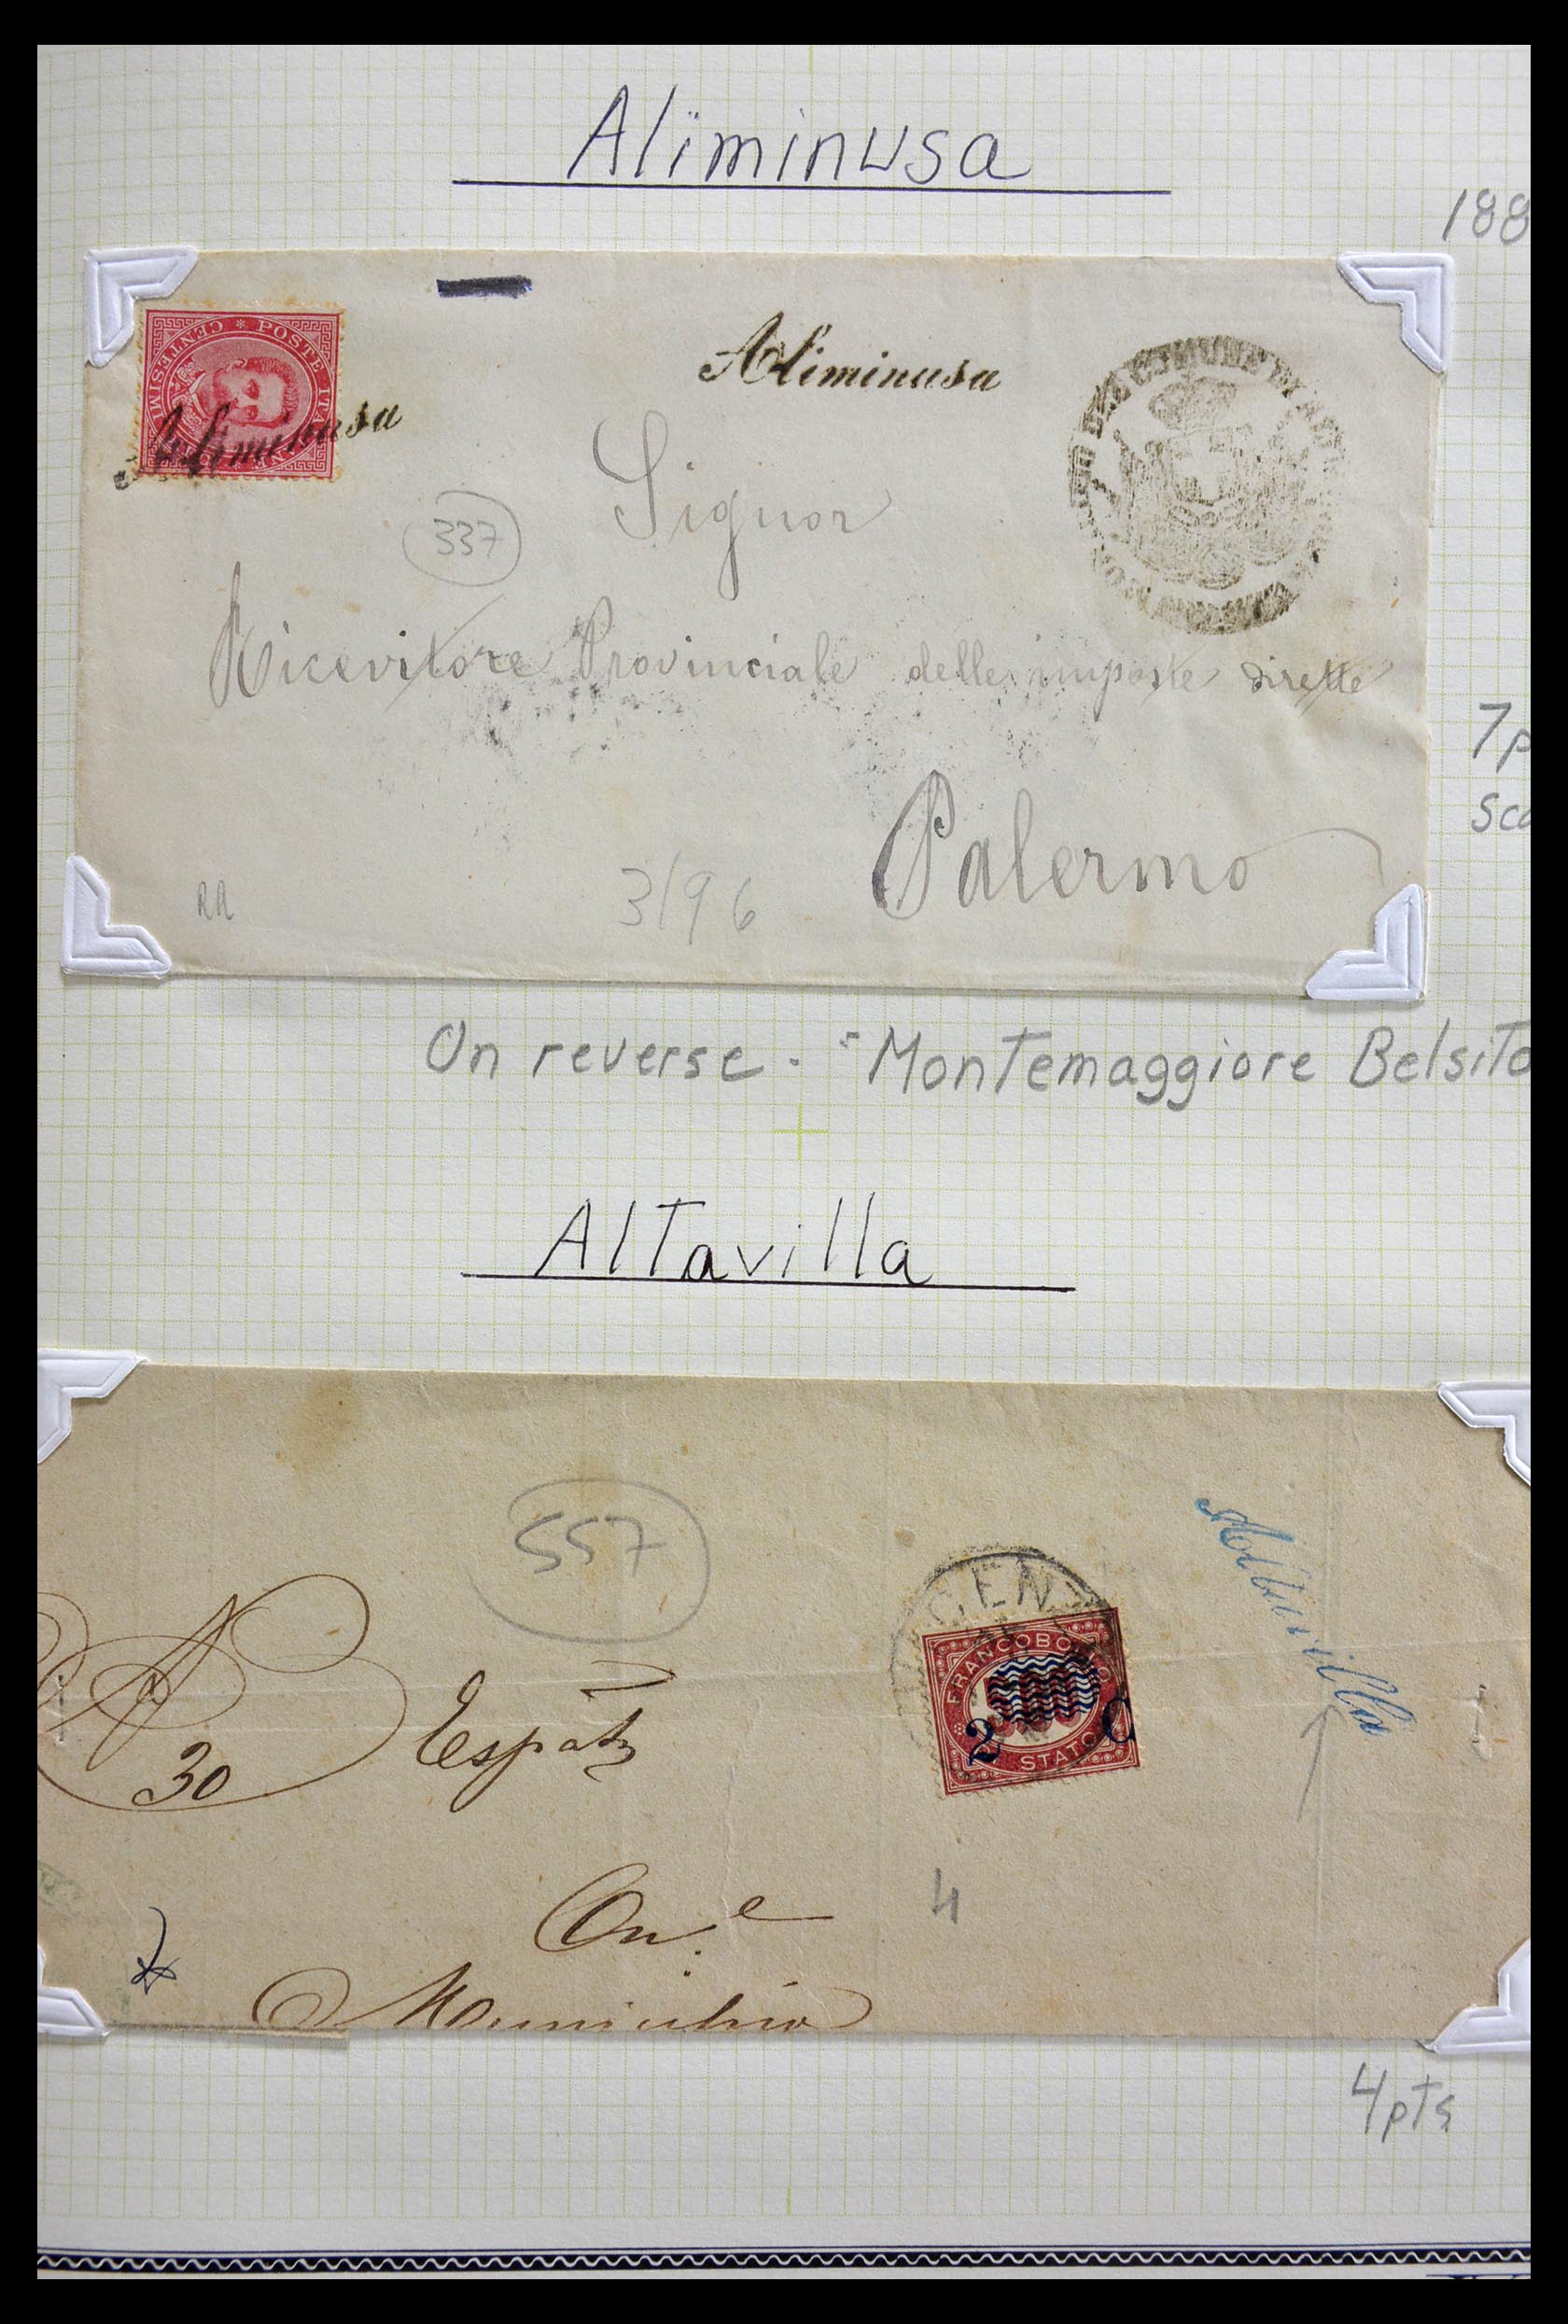 Aliminusa
188
POSTE ITA
CENTESIMI
Aliminusa
Aliminusa
337
Signor
Ricevitore Provinciale delle imposte dirette
Palermo
RR
3/96
7p
sco
On reverse - "Montemaggiore Belsito
Altavilla
557
CEN
FRANCOBOLLO
2 C
STATO
Altavilla
N
30
On.e
4
Municipio
4pts